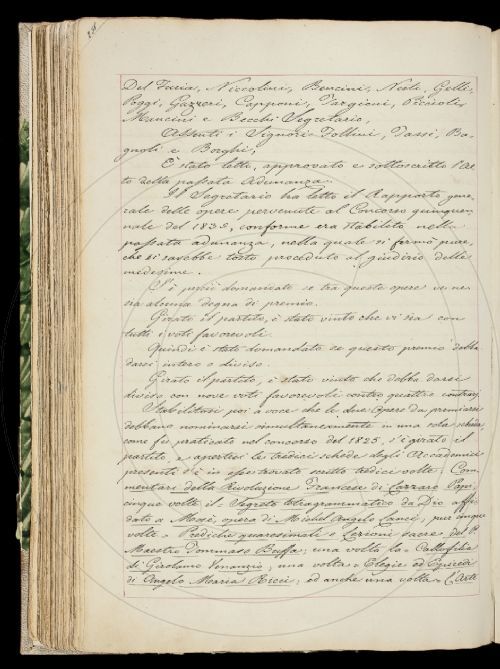 Del Furia, Niccolini, Bencini, Nesti, Gelli,
Poggi, Gazzeri, Capponi, Targioni, Piccioli,
Mancini e Becchi Segretario,
Assenti i Signori Follini, Tassi, Ba-
gnoli e Borghi;
È stato letto, approvato e sottoscritto l'At-
to della passata Adunanza.
Il Segretario ha letto il Rapporto gene-
rale delle opere pervenute al Concorso quinquen-
nale del 1835, conforme era stabilito nella
passata adunanza, nella quale si fermò pure,
che si sarebbe tosto proceduto al giudizio delle
medesime.
S'è poscia domandato se tra queste opere ve ne
sia alcuna degna di premio.
Girato il partito, è stato vinto che vi sia con
tutti i voti favorevoli.
Quindi è stato domandato se questo premio debba
darsi intero o diviso.
Girato il partito, è stato vinto che debba darsi
diviso con nove voti favorevoli contro quattro contrarj.
Stabilitosi poi a voce che le due Opere da premiarsi
debbano nominarsi simultaneamente in una sola scheda
come fu praticato nel concorso del 1825, s'è girato il
partito, e apertesi le tredici schede degli Accademici
presenti s'è in esse trovato scritto tredici volte: Com-
mentarj della Rivoluzione Francese di Lazzaro Papi,
cinque volte il Segreto tetragrammatico da Dio affi-
dato a Mosè, opera di Michel Angelo Lanci; pur cinque
volte Prediche quaresimali e Lezioni sacre del P.
Maestro Tommaso Buffa; una volta la Callofilia
di Girolamo Venanzio; una volta Elegie ed Epicedi
di Angelo Maria Ricci; ed anche una volta L'Arte